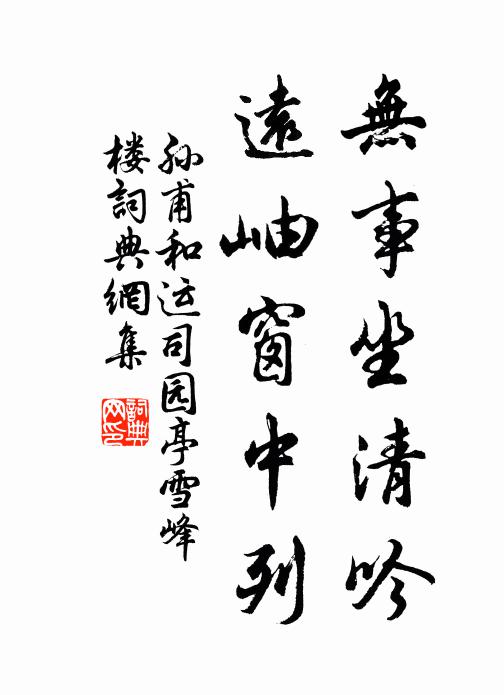 無事坐清吟
遠岫窗中列
孙甫和运司园亭雪峰
楼詞典網集
詞典網印